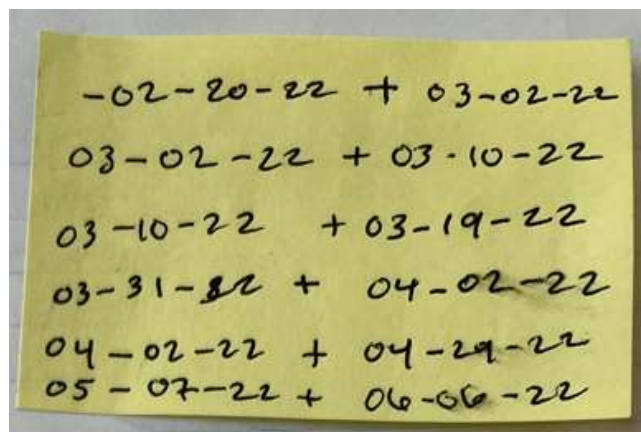 -02-20-22 + 03-02-22
03-02-22 + 03-10-22
03-10-22 + 03-19-22
03-31-22 + 04-02-22
04-02-22 + 04-29-22
05-07-22 + 06-06-22